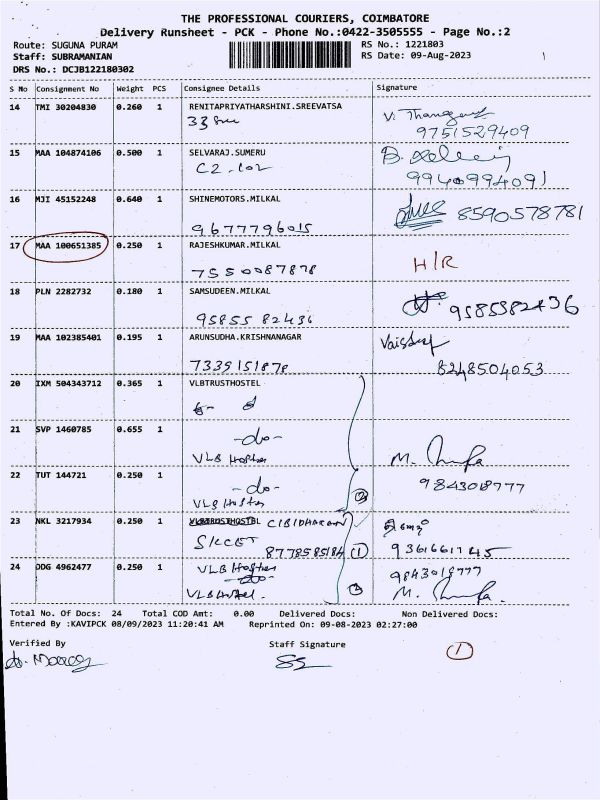 THE PROFESSIONAL COURIERS, COIMBATORE
Delivery Runsheet - PCK - Phone No.:0422-3505555 - Page No.:2
Route: SUGUNA PURAM RS No.: 1221803
Staff: SUBRAMANIAN RS Date: 09-Aug-2023
DRS No.: DCJB122180302
S No Consignment No Weight PCS Consignee Details Signature
14 TMI 30204830 0.260 1 RENITAPRIYATHARSHINI.SREEVATSA
9751529409
15 MAA 104874106 0.500 1 SELVARAJ.SUMERU
9940994091
16 MJI 45152248 0.640 1 SHINEMOTORS.MILKAL
9677796015 8590578781
17 MAA 100651385 0.250 1 RAJESHKUMAR.MILKAL
7550087878 H/R
18 PLN 2282732 0.180 1 SAMSUDEEN.MILKAL
95855 82436 9585582436
19 MAA 102385401 0.195 1 ARUNSUDHA.KRISHNANAGAR
7339151878 8248504053
20 IXM 504343712 0.365 1 VLBTRUSTHOSTEL
21 SVP 1460785 0.655 1 -do-
22 TUT 144721 0.250 1 -do- 9843018777
23 NKL 3217934 0.250 1 VLBTRUSTHOSTEL CIBIDHARAN
SKCET 8778585184 1 9361661745
24 DDG 4962477 0.250 1 9843018777
VLB Hostel.
Total No. Of Docs: 24 Total COD Amt: 0.00 Delivered Docs: Non Delivered Docs:
Entered By :KAVIPCK 08/09/2023 11:20:41 AM Reprinted On: 09-08-2023 02:27:00
Verified By Staff Signature
1